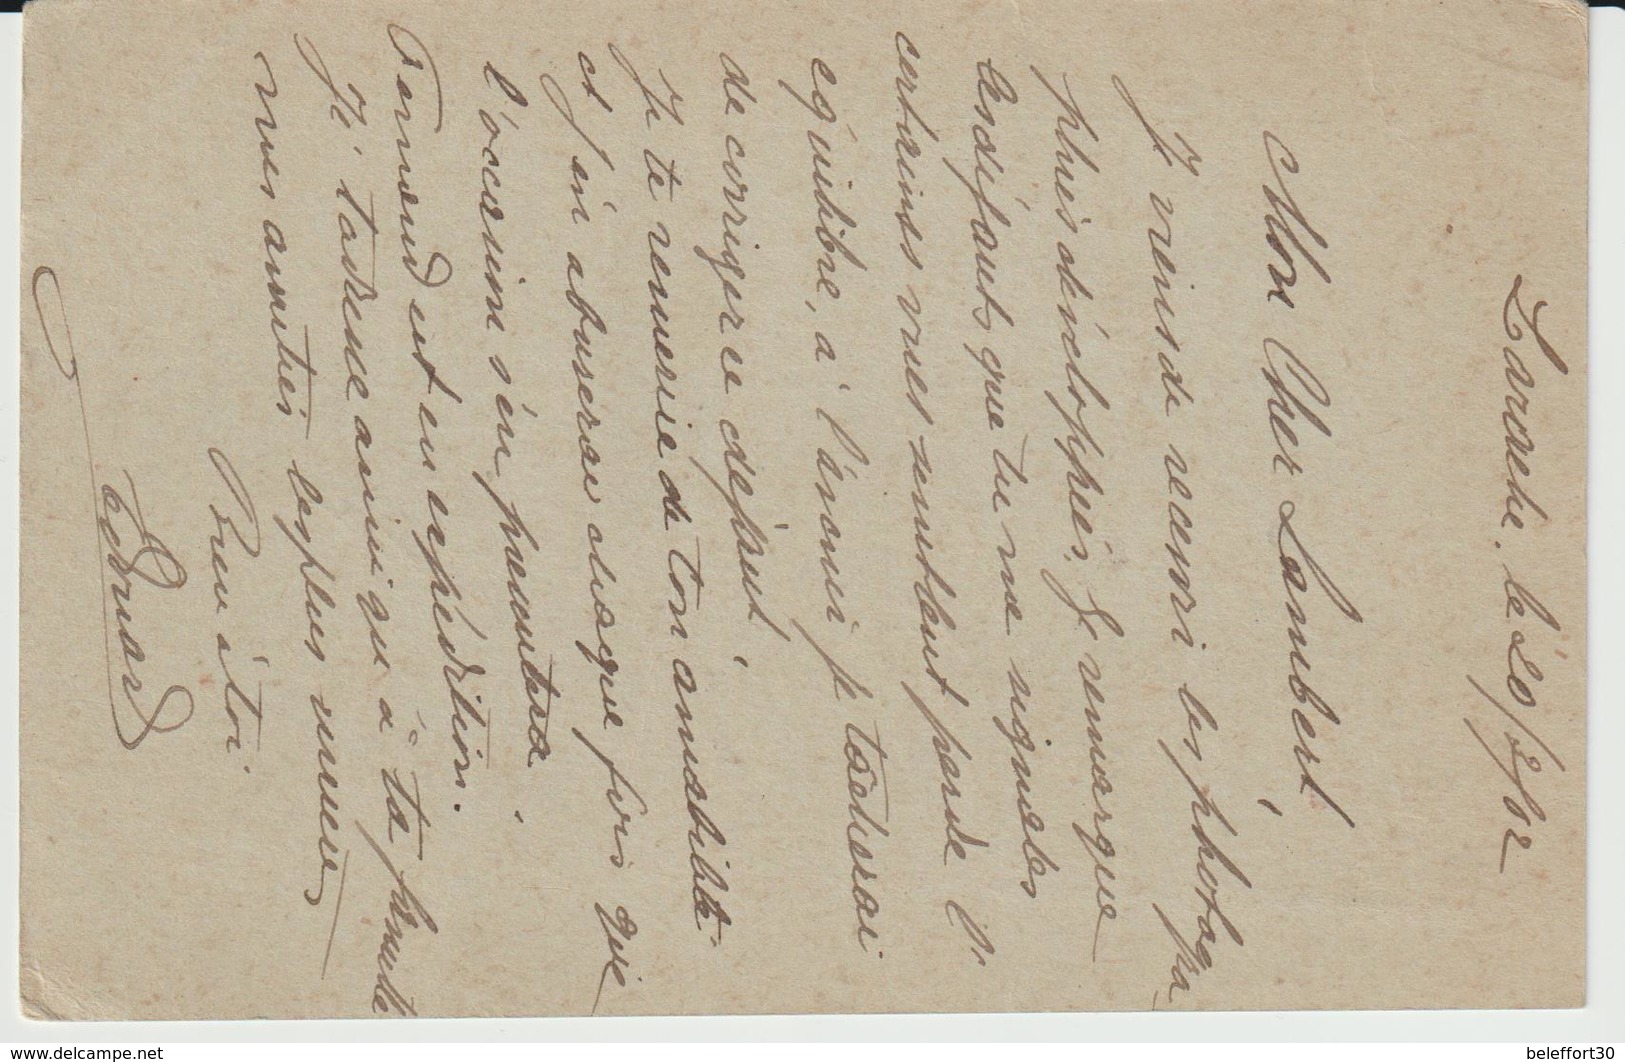 Larache, le 20/2/12
Mon Cher Lambert,
Je viens de recevoir les photogra
phies développées. Je remarque
les défauts que tu me signales
certaines vues semblent perdre l'
équilibre, à l'avenir je tâcherai
de corriger ce défaut.
Je te remercie de ton amabilité
et j'en abuserai chaque fois que
l'occasion s'en présentera.
Fernand est en expédition.
Je t'adresse ainsi qu'à ta famille
mes amitiés les plus
Bien à toi
Edouard
www.delcampe.net
beleffort30